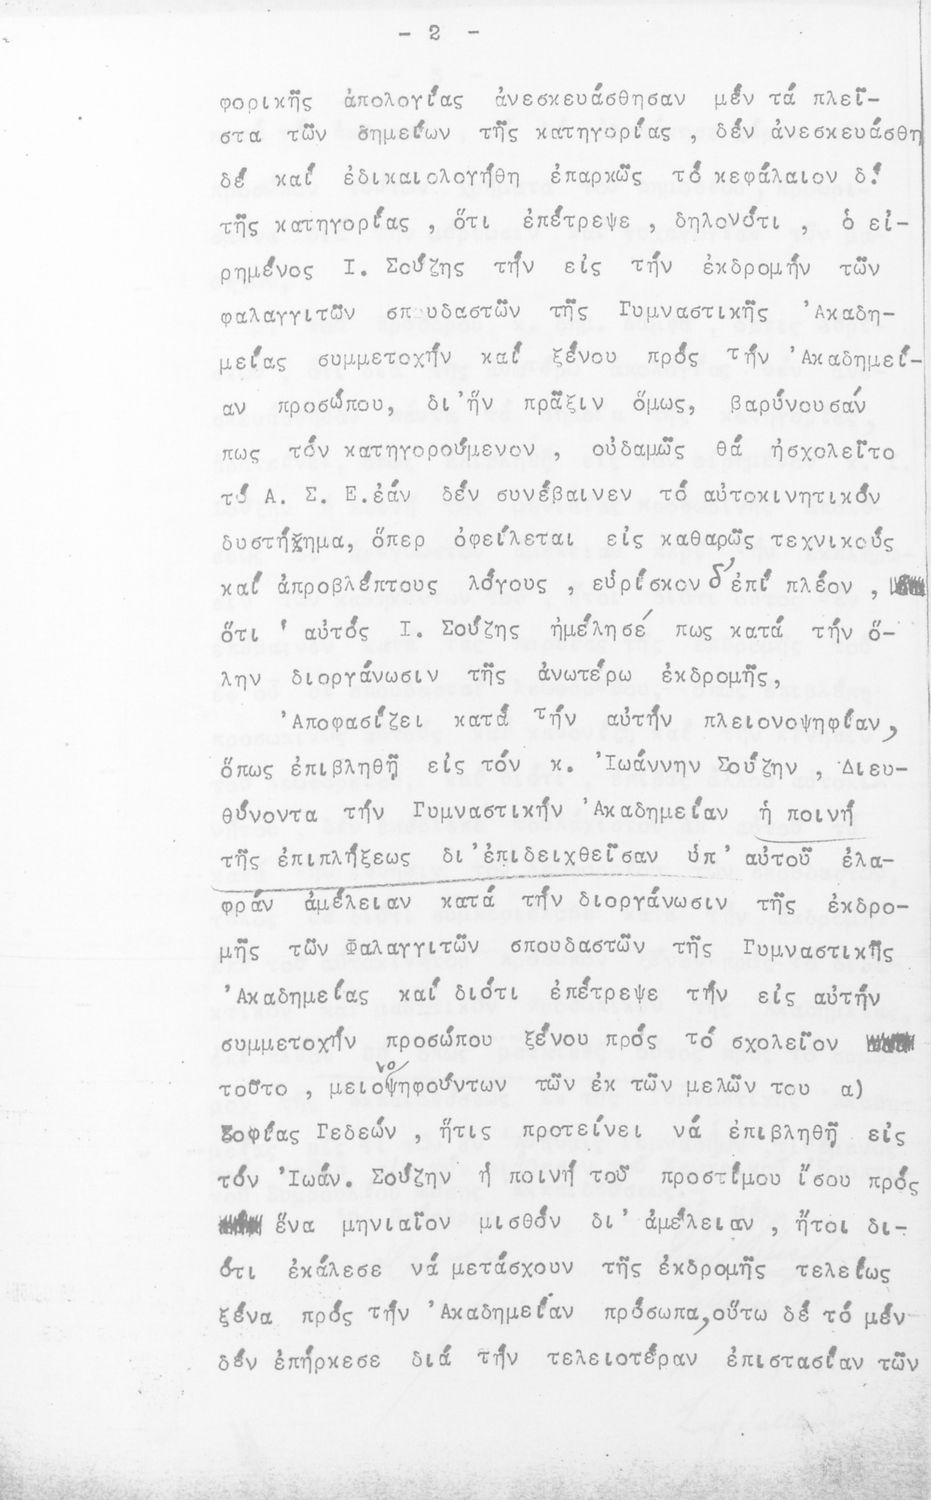 - 2 -
φορικῆς ἀπολογίας ἀνεσκευάσθησαν μέν τά πλεῖ-
στα τῶν σημείων τῆς κατηγορίας , δέν ἀνεσκευάσθη
δέ καί ἐδικαιολογήθη ἐπαρκῶς τό κεφάλαιον δ!
τῆς κατηγορίας , ὅτι ἐπέτρεψε , δηλονότι , ὁ εἰ-
ρημένος Ι. Σούζης τήν εἰς τήν ἐκδρομήν τῶν
φαλαγγιτῶν σπουδαστῶν τῆς Γυμναστικῆς 'Ακαδη-
μείας συμμετοχήν καί ξένου πρός τήν 'Ακαδημεί-
αν προσώπου, δι'ἥν πρᾶξιν ὅμως, βαρύνουσάν
πως τόν κατηγορούμενον , οὐδαμῶς θά ἠσχολεῖτο
τό Α. Σ. Ε.ἐάν δέν συνέβαινεν τό αὐτοκινητικόν
δυστήχημα, ὅπερ ὀφείλεται εἰς καθαρῶς τεχνικούς
καί ἀπροβλέπτους λόγους , εὑρίσκον δ' ἐπί πλέον ,
ὅτι ' αὐτός Ι. Σούζης ἠμέλησέ πως κατά τήν ὅ-
λην διοργάνωσιν τῆς ἀνωτέρω ἐκδρομῆς,
'Αποφασίζει κατά τήν αὐτήν πλειονοψηφίαν,
ὅπως ἐπιβληθῇ εἰς τόν κ. 'Ιωάννην Σούζην , Διευ-
θύνοντα τήν Γυμναστικήν 'Ακαδημείαν ἡ ποινή
τῆς ἐπιπλήξεως δι'ἐπιδειχθεῖσαν ὑπ' αὐτοῦ ἐλα-
φράν ἀμέλειαν κατά τήν διοργάνωσιν τῆς ἐκδρο-
μῆς τῶν Φαλαγγιτῶν σπουδαστῶν τῆς Γυμναστικῆς
'Ακαδημείας καί διότι ἐπέτρεψε τήν εἰς αὐτήν
συμμετοχήν προσώπου ξένου πρός τό σχολεῖον
τοῦτο , μειονοψηφούντων τῶν ἐκ τῶν μελῶν του α)
Σοφίας Γεδεών , ἥτις προτείνει νά ἐπιβληθῇ εἰς
τόν 'Ιωάν. Σούζην ἡ ποινή τοῦ προστίμου ἴσου πρός
ἕνα μηνιαῖον μισθόν δι' ἀμέλειαν , ἤτοι δι-
ότι ἐκάλεσε νά μετάσχουν τῆς ἐκδρομῆς τελείως
ξένα πρός τήν 'Ακαδημείαν πρόσωπα,οὕτω δέ τό μέν
δέν ἐπήρκεσε διά τήν τελειοτέραν ἐπιστασίαν τῶν